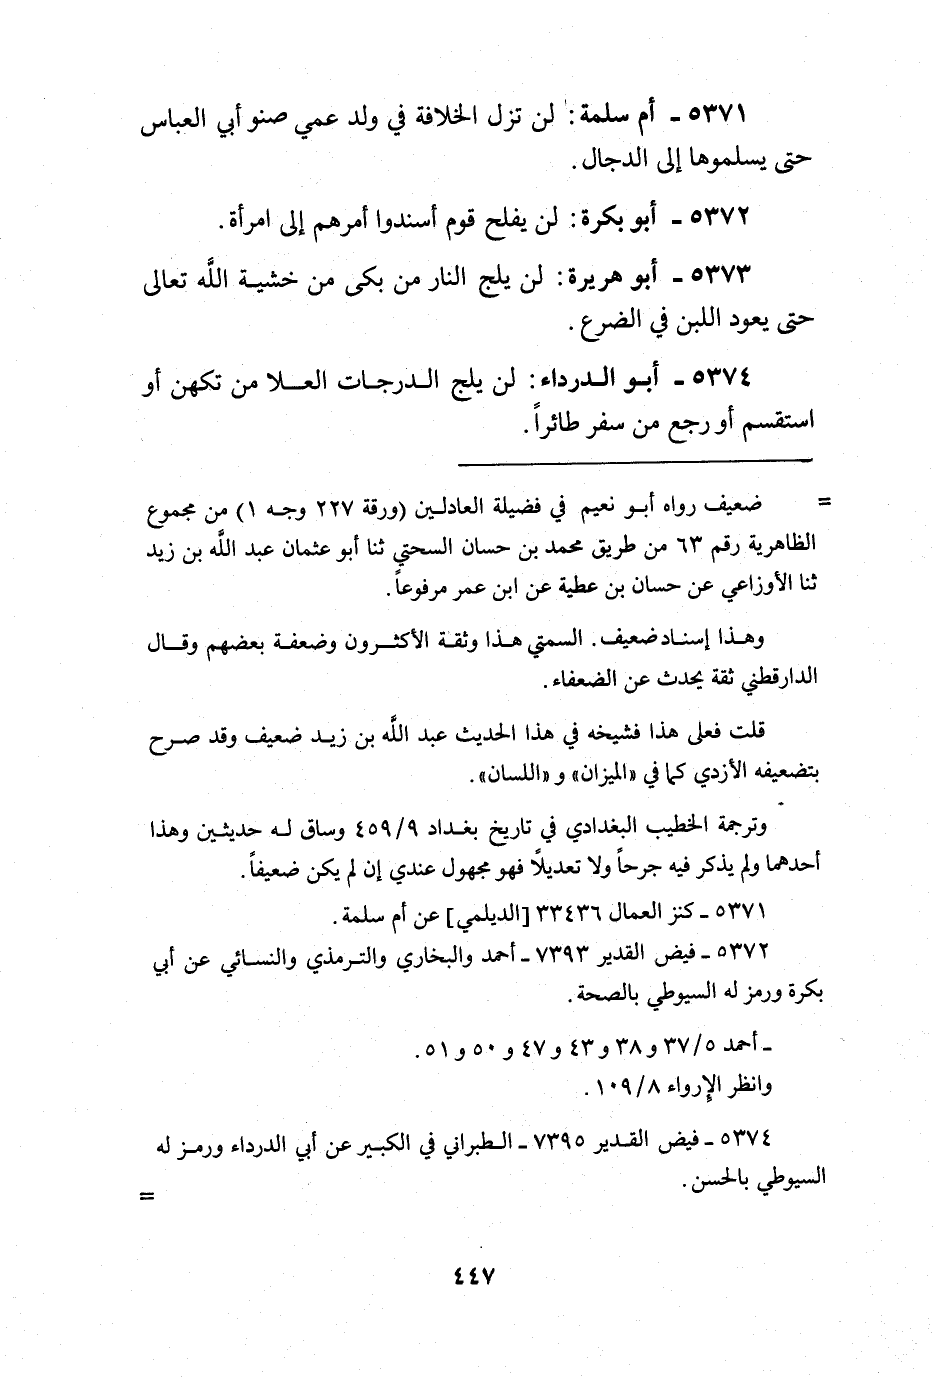 ٥٣٧١ ـ أم سلمة: لن تزل الخلافة في ولد عمي صنو أبي العباس
حتى يسلموها إلى الدجال.
٥٣٧٢ ـ أبو بكرة: لن يفلح قوم أسندوا أمرهم إلى امرأة.
٥٣٧٣ ـ أبو هريرة: لن يلج النار من بكى من خشية اللَّه تعالى
حتى يعود اللبن في الضرع.
٥٣٧٤ ـ أبو الدرداء: لن يلج الدرجات العلا من تكهن أو
استقسم أو رجع من سفر طائراً.
= ضعيف رواه أبو نعيم في فضيلة العادلين (ورقة ٢٢٧ وجه ١) من مجموع
الظاهرية رقم ٦٣ من طريق محمد بن حسان السحتي ثنا أبو عثمان عبد اللَّه بن زيد
ثنا الأوزاعي عن حسان بن عطية عن ابن عمر مرفوعاً.
وهذا إسناد ضعيف. السمتي هذا وثقة الأكثرون وضعفة بعضهم وقال
الدارقطني ثقة يحدث عن الضعفاء.
قلت فعلى هذا فشيخه في هذا الحديث عبد اللَّه بن زيد ضعيف وقد صرح
بتضعيفه الأزدي كما في «الميزان» و «اللسان».
وترجمة الخطيب البغدادي في تاريخ بغداد ٤٥٩/٩ وساق له حديثين وهذا
أحدهما ولم يذكر فيه جرحاً ولا تعديلاً فهو مجهول عندي إن لم يكن ضعيفاً.
٥٣٧١ ـ كنز العمال ٣٣٤٣٦ [الديلمي] عن أم سلمة.
٥٣٧٢ ـ فيض القدير ٧٣٩٣ ـ أحمد والبخاري والترمذي والنسائي عن أبي
بكرة ورمز له السيوطي بالصحة.
ـ أحمد ٣٧/٥ و ٣٨ و ٤٣ و ٤٧ و ٥٠ و ٥١.
وانظر الإرواء ١٠٩/٨.
٥٣٧٤ ـ فيض القدير ٧٣٩٥ ـ الطبراني في الكبير عن أبي الدرداء ورمز له
السيوطي بالحسن.
=
٤٤٧